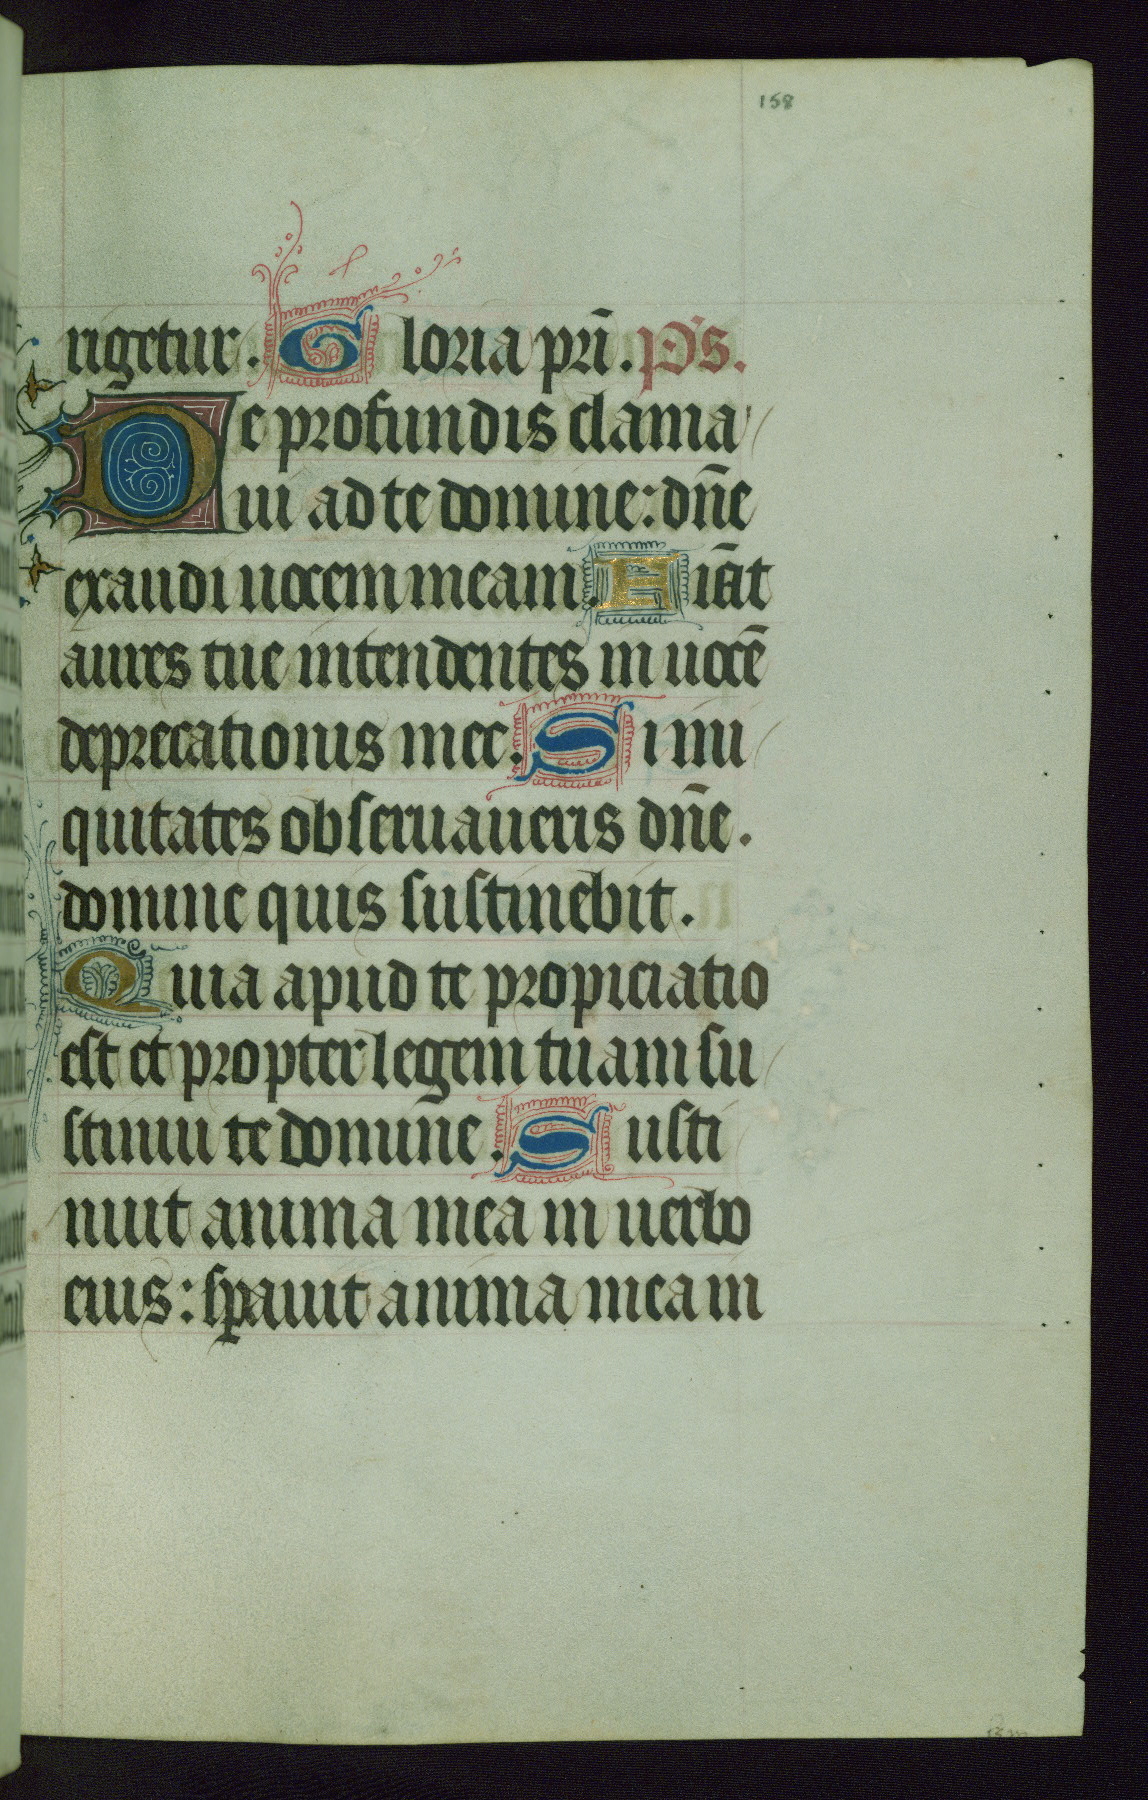 158
rigetur. Gloria pr̄i. Ps.
De profundis clama
ui ad te domine: dn̄e
exaudi uocem meam. Fiāt
aures tue intendentes in uocē
deprecationis mee. Si ini
quitates obseruaueris dn̄e.
domine quis sustinebit.
Quia apud te propiciatio
est et propter legem tuam su
stinui te domine. Susti
nuit anima mea in uerbo
eius: sꝑauit anima mea in